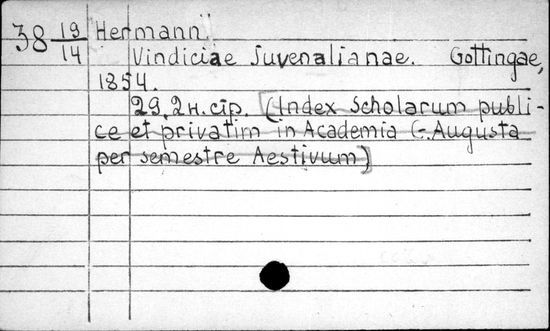 38 19/14 Hermann
Vindiciae Juvenalianae. Gottingae,
1854.
29, 2н. стр. (Index Scholarum publi-
ce et privatim in Academia G. Augusta
per semestre Aestivum)